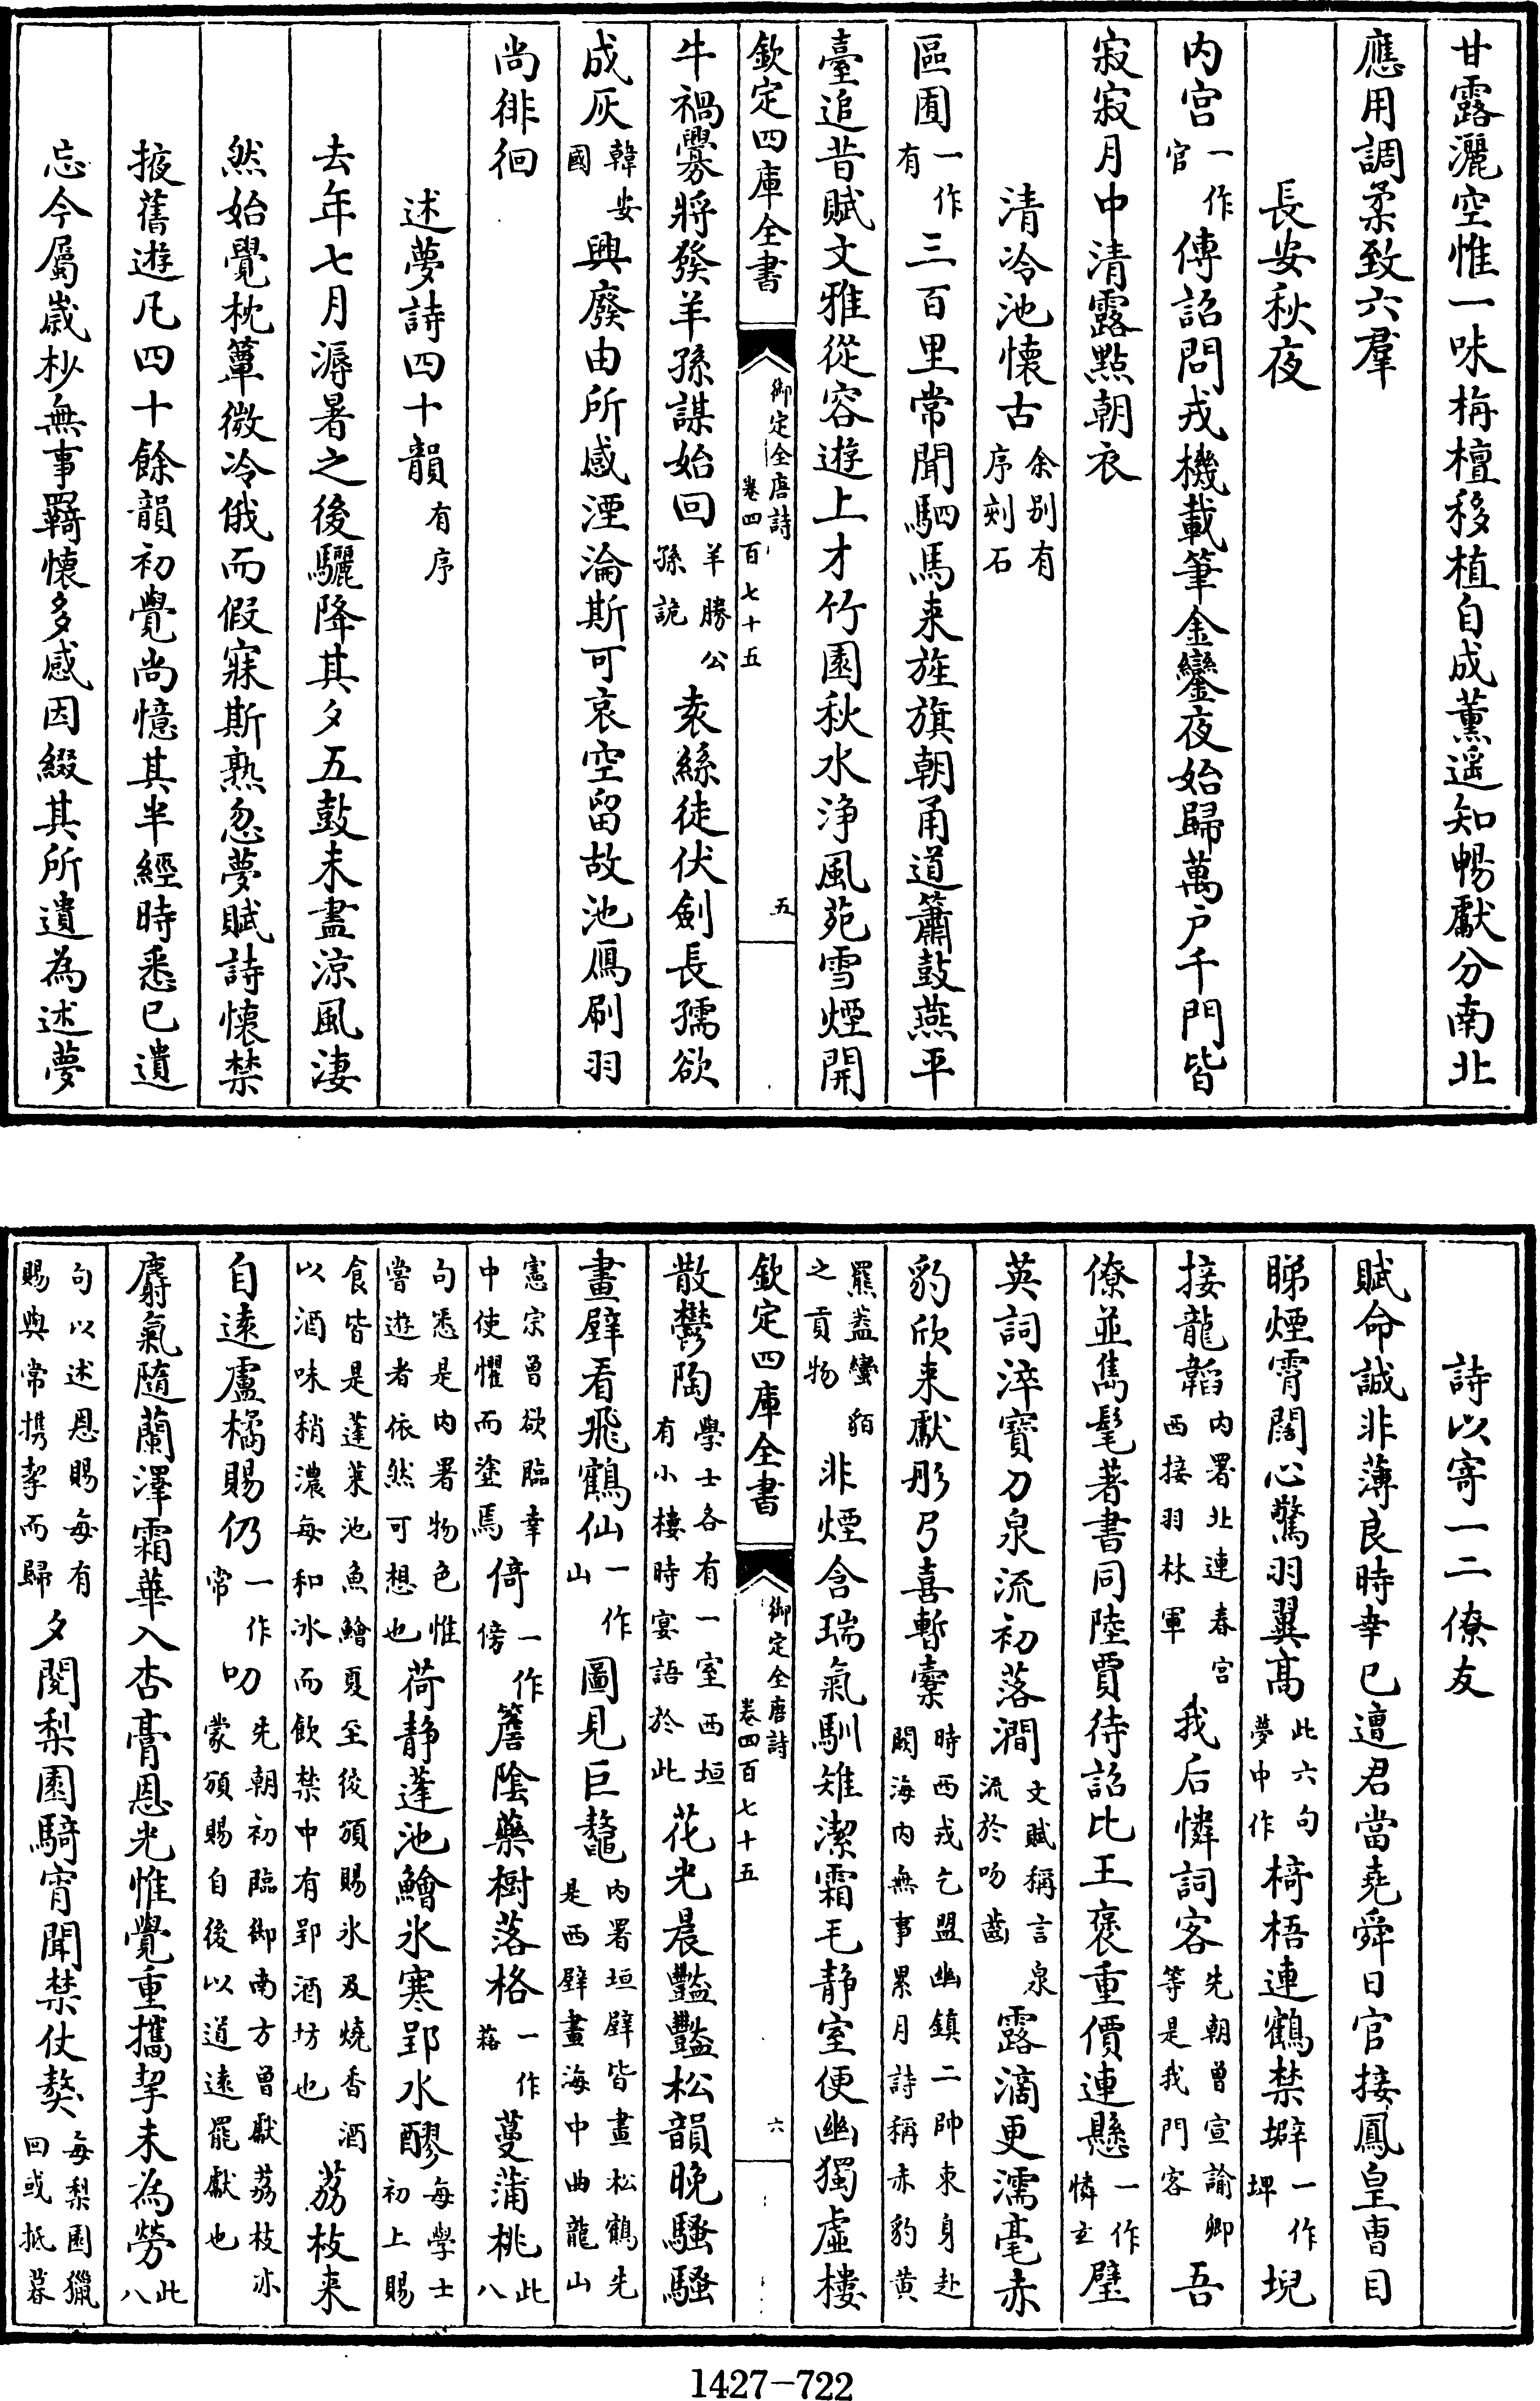 甘露灑空惟一味栴檀移植自成薰遥知暢獻分南北
應用調柔致六羣
長安秋夜
内宫一作官傳詔問戎機載筆金鑾夜始歸萬户千門皆
寂寂月中清露點朝衣
清冷池懷古余别有序刻石
區囿一作有三百里常聞駟馬来旌旗朝甬道簫鼓燕平
臺追昔賦文雅從容遊上才竹園秋水浄風苑雪煙開
欽定四庫全書 御定全唐詩卷四百七十五 五
牛禍釁將發羊孫謀始回羊勝公孫詭袁絲徒伏劍長孺欲
成灰韓安國興廢由所感湮淪斯可哀空留故池鴈刷羽
尚徘徊
述夢詩四十韻有序
去年七月溽暑之後驪降其夕五鼓未盡涼風淒
然始覺枕簟微冷俄而假寐斯熟忽夢賦詩懷禁
掖舊遊凡四十餘韻初覺尚憶其半經時悉已遺
忘今屬歲杪無事羈懷多感因綴其所遺為述夢
詩以寄一二僚友
賦命誠非薄良時幸已遭君當堯舜日官接鳳皇曹目
睇煙霄闊心驚羽翼髙此六句夢中作椅梧連鶴禁壀一作埤堄
接龍韜内署北連春宫西接羽林軍我后憐詞客先朝曽宣諭卿等是我門客吾
僚並雋髦著書同陸賈待詔比王褒重價連懸一作憐玄璧
英詞淬寶刀泉流初落澗文賦稱言泉流於吻齒露滴更濡毫赤
豹欣来獻彤弓喜暫櫜時西戎乞盟幽鎮二帥束身赴闕海内無事累月詩稱赤豹黄
羆葢蠻貊之貢物非煙含瑞氣馴雉潔霜毛静室便幽獨虛樓
欽定四庫全書 御定全唐詩卷四百七十五 六
散鬱陶學士各有一室西垣有小樓時宴語於此花光晨豔豔松韻晚騷騷
畫壁看飛鶴仙一作山圖見巨鼇内署垣壁皆畫松鶴先是西壁畫海中曲龍山
憲宗曽欲臨幸中使懼而塗焉倚一作傍簷隂藥樹落格一作蘀蔓蒲桃此八
句悉是内署物色惟嘗遊者依然可想也荷静蓬池鱠氷寒郢水醪每學士初上賜
食皆是蓬萊池魚鱠夏至後頒賜氷及燒香酒以酒味稍濃每和冰而飲禁中有郢酒坊也荔枝来
自逺盧橘賜仍一作常叨先朝初臨御南方曽獻荔枝亦蒙頒賜自後以道逺罷獻也
麝氣隨蘭澤霜華入杏膏恩光惟覺重攜挈未為勞此八
句以述恩賜每有賜與常携挈而歸夕閱梨園騎宵聞禁仗獒每梨園獵回或抵暮
1427-722